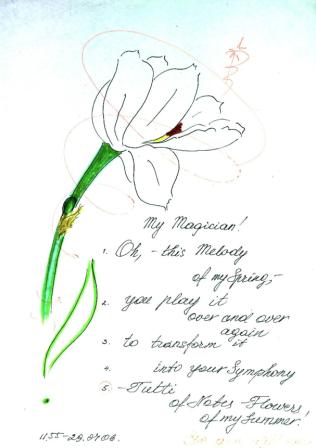 My Magician!
1. Oh, - this Melody
of my Spring, -
2. you play it
over and over
again
3. to transform it
4. into your Symphony
5. - Tutti
of Notes - Flowers,
of my Summer.